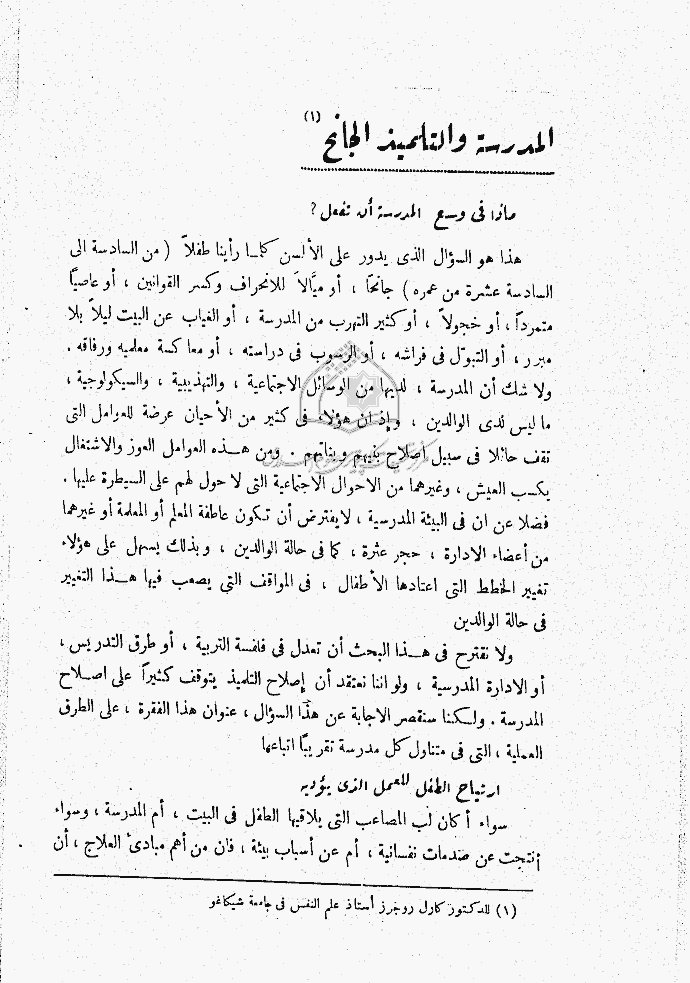 المدرسة والتلميذ الجانح (١)
ماذا فى وسع المدرسة أن تفعل ؟
هذا هو السؤال الذى يدور على الألسن كلما رأينا طفلاً ( من السادسة الى
السادسة عشرة من عمره ) جانحًا ، أو ميَّالاً للانحراف وكسر القوانين ، أو عاصيًا
متمرداً ، أو خجولاً ، أو كثير التهرب من المدرسة ، أو الغياب عن البيت ليلاً بلا
مبرر ، أو التبوّل فى فراشه ، أو الرسوب فى دراسته ، أو معاكسة معلميه ورفاقه .
ولا شك أن المدرسة ، لديها من الوسائل الاجتماعية ، والتهذيبية ، والسيكولوجية ،
ما ليس لدى الوالدين ، وإذ ان هؤلاء فى كثير من الأحيان عرضة للعوامل التى
تقف حائلا فى سبيل اصلاح بنيهم وبناتهم . ومن هذه العوامل العوز والاشتغال
بكسب العيش ، وغيرهما من الاحوال الاجتماعية التى لا حول لهم على السيطرة عليها .
فضلا عن ان فى البيئة المدرسية ، لا يفترض أن تكون عاطفة المعلم أو المعلمة أو غيرهما
من أعضاء الادارة ، حجر عثرة ، كما فى حالة الوالدين ، وبذلك يسهل على هؤلاء
تغيير الخطط التى اعتادها الأطفال ، فى المواقف التى يصعب فيها هذا التغيير
فى حالة الوالدين
ولا نقترح فى هذا البحث أن تعدل فى فلفسة التربية ، أو طرق التدريس ،
أو الادارة المدرسية ، ولو اننا نعتقد أن إصلاح التلميذ يتوقف كثيراً على اصلاح
المدرسة . ولكننا سنقصر الاجابة عن هذا السؤال ، عنوان هذا الفقرة ، على الطرق
العملية ، التى فى متناول كل مدرسة تقريبًا اتباعها
ارتياح الطفل للعمل الذى يؤديه
سواء أكان لب المصاعب التى يلاقيها الطفل فى البيت ، أم المدرسة ، وسواء
أنتجت عن صدمات نفسانية ، أم عن أسباب بيئة ، فان من أهم مبادئ العلاج ، أن
(١) للدكتور كارل روجرز أستاذ علم النفس فى جامعة شيكاغو